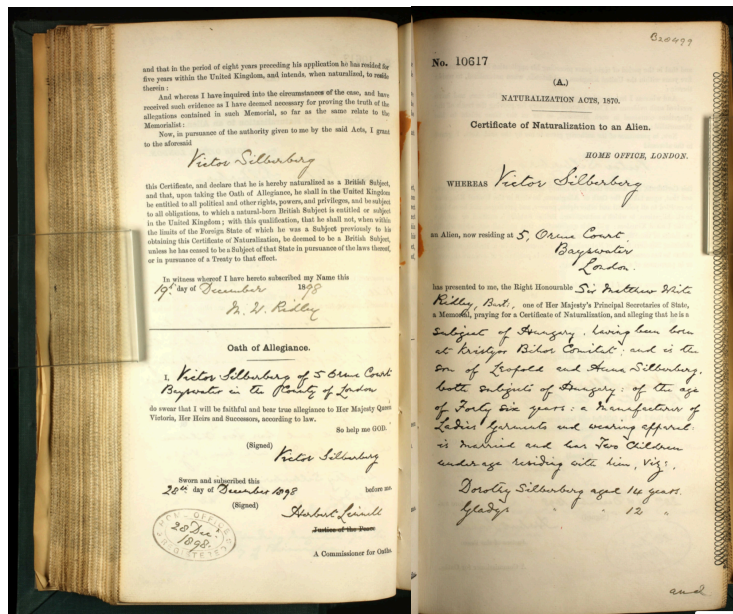 and that in the period of eight years preceding his application he has resided for
five years within the United Kingdom, and intends, when naturalized, to reside
therein:
And whereas I have inquired into the circumstances of the case, and have
received such evidence as I have deemed necessary for proving the truth of the
allegations contained in such Memorial, so far as the same relate to the
Memorialist:
Now, in pursuance of the authority given to me by the said Acts, I grant
to the aforesaid
Victor Silberberg
this Certificate, and declare that he is hereby naturalised as a British Subject,
and that, upon taking the Oath of Allegiance, he shall in the United Kingdom
be entitled to all political and other rights, powers, and privileges, and be subject
to all obligations, to which a natural-born British Subject is entitled or subject
in the United Kingdom; with this qualification, that he shall not, when within
the limits of the Foreign State of which he was a Subject previously to his
obtaining this Certificate of Naturalization, be deemed to be a British Subject,
unless he has ceased to be a Subject of that State in pursuance of the laws thereof,
or in pursuance of a Treaty to that effect.
In witness whereof I have hereto subscribed my Name this
19th day of December 1898
M. W. Ridley
Oath of Allegiance.
I, Victor Silberberg of 5 Orme Court
Bayswater in the County of London
do swear that I will be faithful and bear true allegiance to Her Majesty Queen
Victoria, Her Heirs and Successors, according to law.
So help me GOD.
(Signed)
Victor Silberberg
Sworn and subscribed this
28th day of December 1898 before me.
(Signed)
Herbert Linnell
Justice of the Peace
A Commissioner for Oaths.
HOME OFFICE
28 Dec.
1898.
REGISTERED
B20499
No. 10617
(A.)
NATURALIZATION ACTS, 1870.
Certificate of Naturalization to an Alien.
HOME OFFICE, LONDON.
WHEREAS Victor Silberberg
an Alien, now residing at 5, Orme Court
Bayswater
London.
has presented to me, the Right Honourable Sir Matthew White
Ridley, Bart, one of Her Majesty's Principal Secretaries of State,
a Memorial, praying for a Certificate of Naturalization, and alleging that he is a
Subject of Hungary, having been born
at Kristyor Bihor Comitat; and is the
son of Leopold and Anna Silberberg,
both subjects of Hungary: of the age
of Forty six years: a Manufacturer of
Ladies Garments and wearing apparel:
is married and has Two Children
under age residing with him, Viz:,
Dorothy Silberberg aged 14 years.
Gladys " " 12 "
and